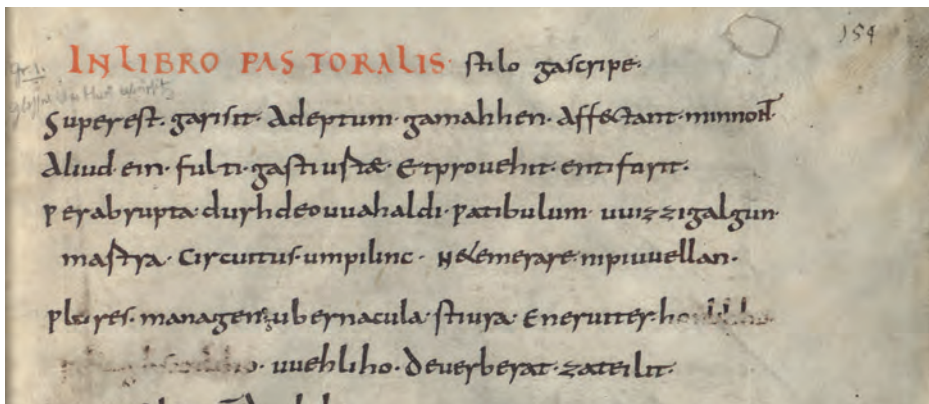 154
IN LIBRO PASTORALIS· stilo gascripe·
Superest· garisit· Adeptum· gamahhen· Affectant· minnont·
Aliud· ein· fulti· gastiustæ· Et provehit· enti furit·
Per abrupta· durh deo uuahaldi· patibulum· uuizzigalgun·
mastra· Circuitus· umpilinc· Nelemerare· nipiuuellan·
Plures· managen· gubernacula· stiura· Eneruiter·
uuehliho· Deuerberat· zateilit·